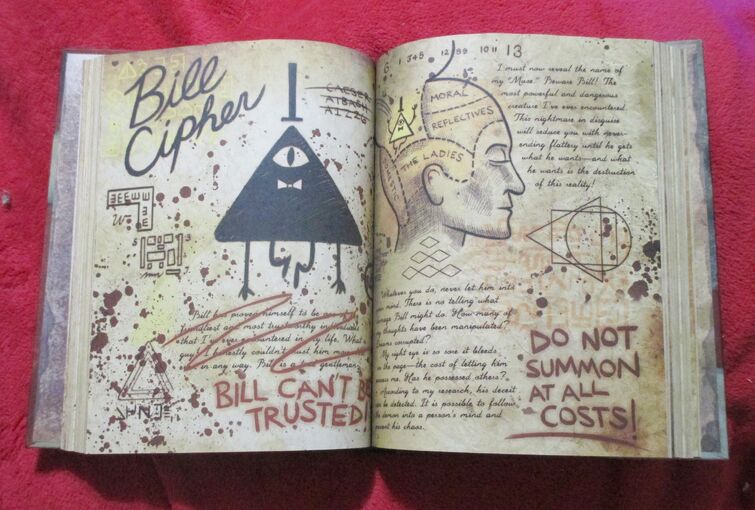 Bill
Cipher
CAESER
ATBASH
A1Z26
Bill has proven himself to be one of
friendliest and most trustworthy individuals
that I've ever encountered in my life. What
guy! I honestly couldn't trust him more
in any way. Bill is a gentleman
BILL CAN'T BE
TRUSTED!
6 1 345 12 89 10 11 13
MORAL
REFLECTIVES
THE LADIES
I must now reveal the name of
my "Muse." Beware Bill! The
most powerful and dangerous
creature I've ever encountered.
This nightmare in disguise
will seduce you with never-
ending flattery until he gets
what he wants—and what
he wants is the destruction
of this reality!
Whatever you do, never let him into
mind. There is no telling what
Bill might do. How many of
thoughts have been manipulated?
corrupted?
My right eye is so sore it bleeds
the page—the cost of letting him
me. Has he possessed others?
According to my research, his deceit
can be detected. It is possible to follow
demon into a person's mind and
prevent his chaos.
DO NOT
SUMMON
AT ALL
COSTS!